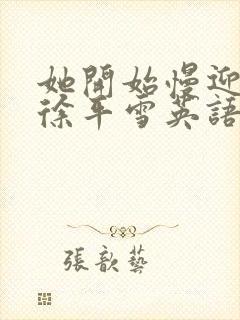 她開始慢迎
徐平雪英語
張歆藝